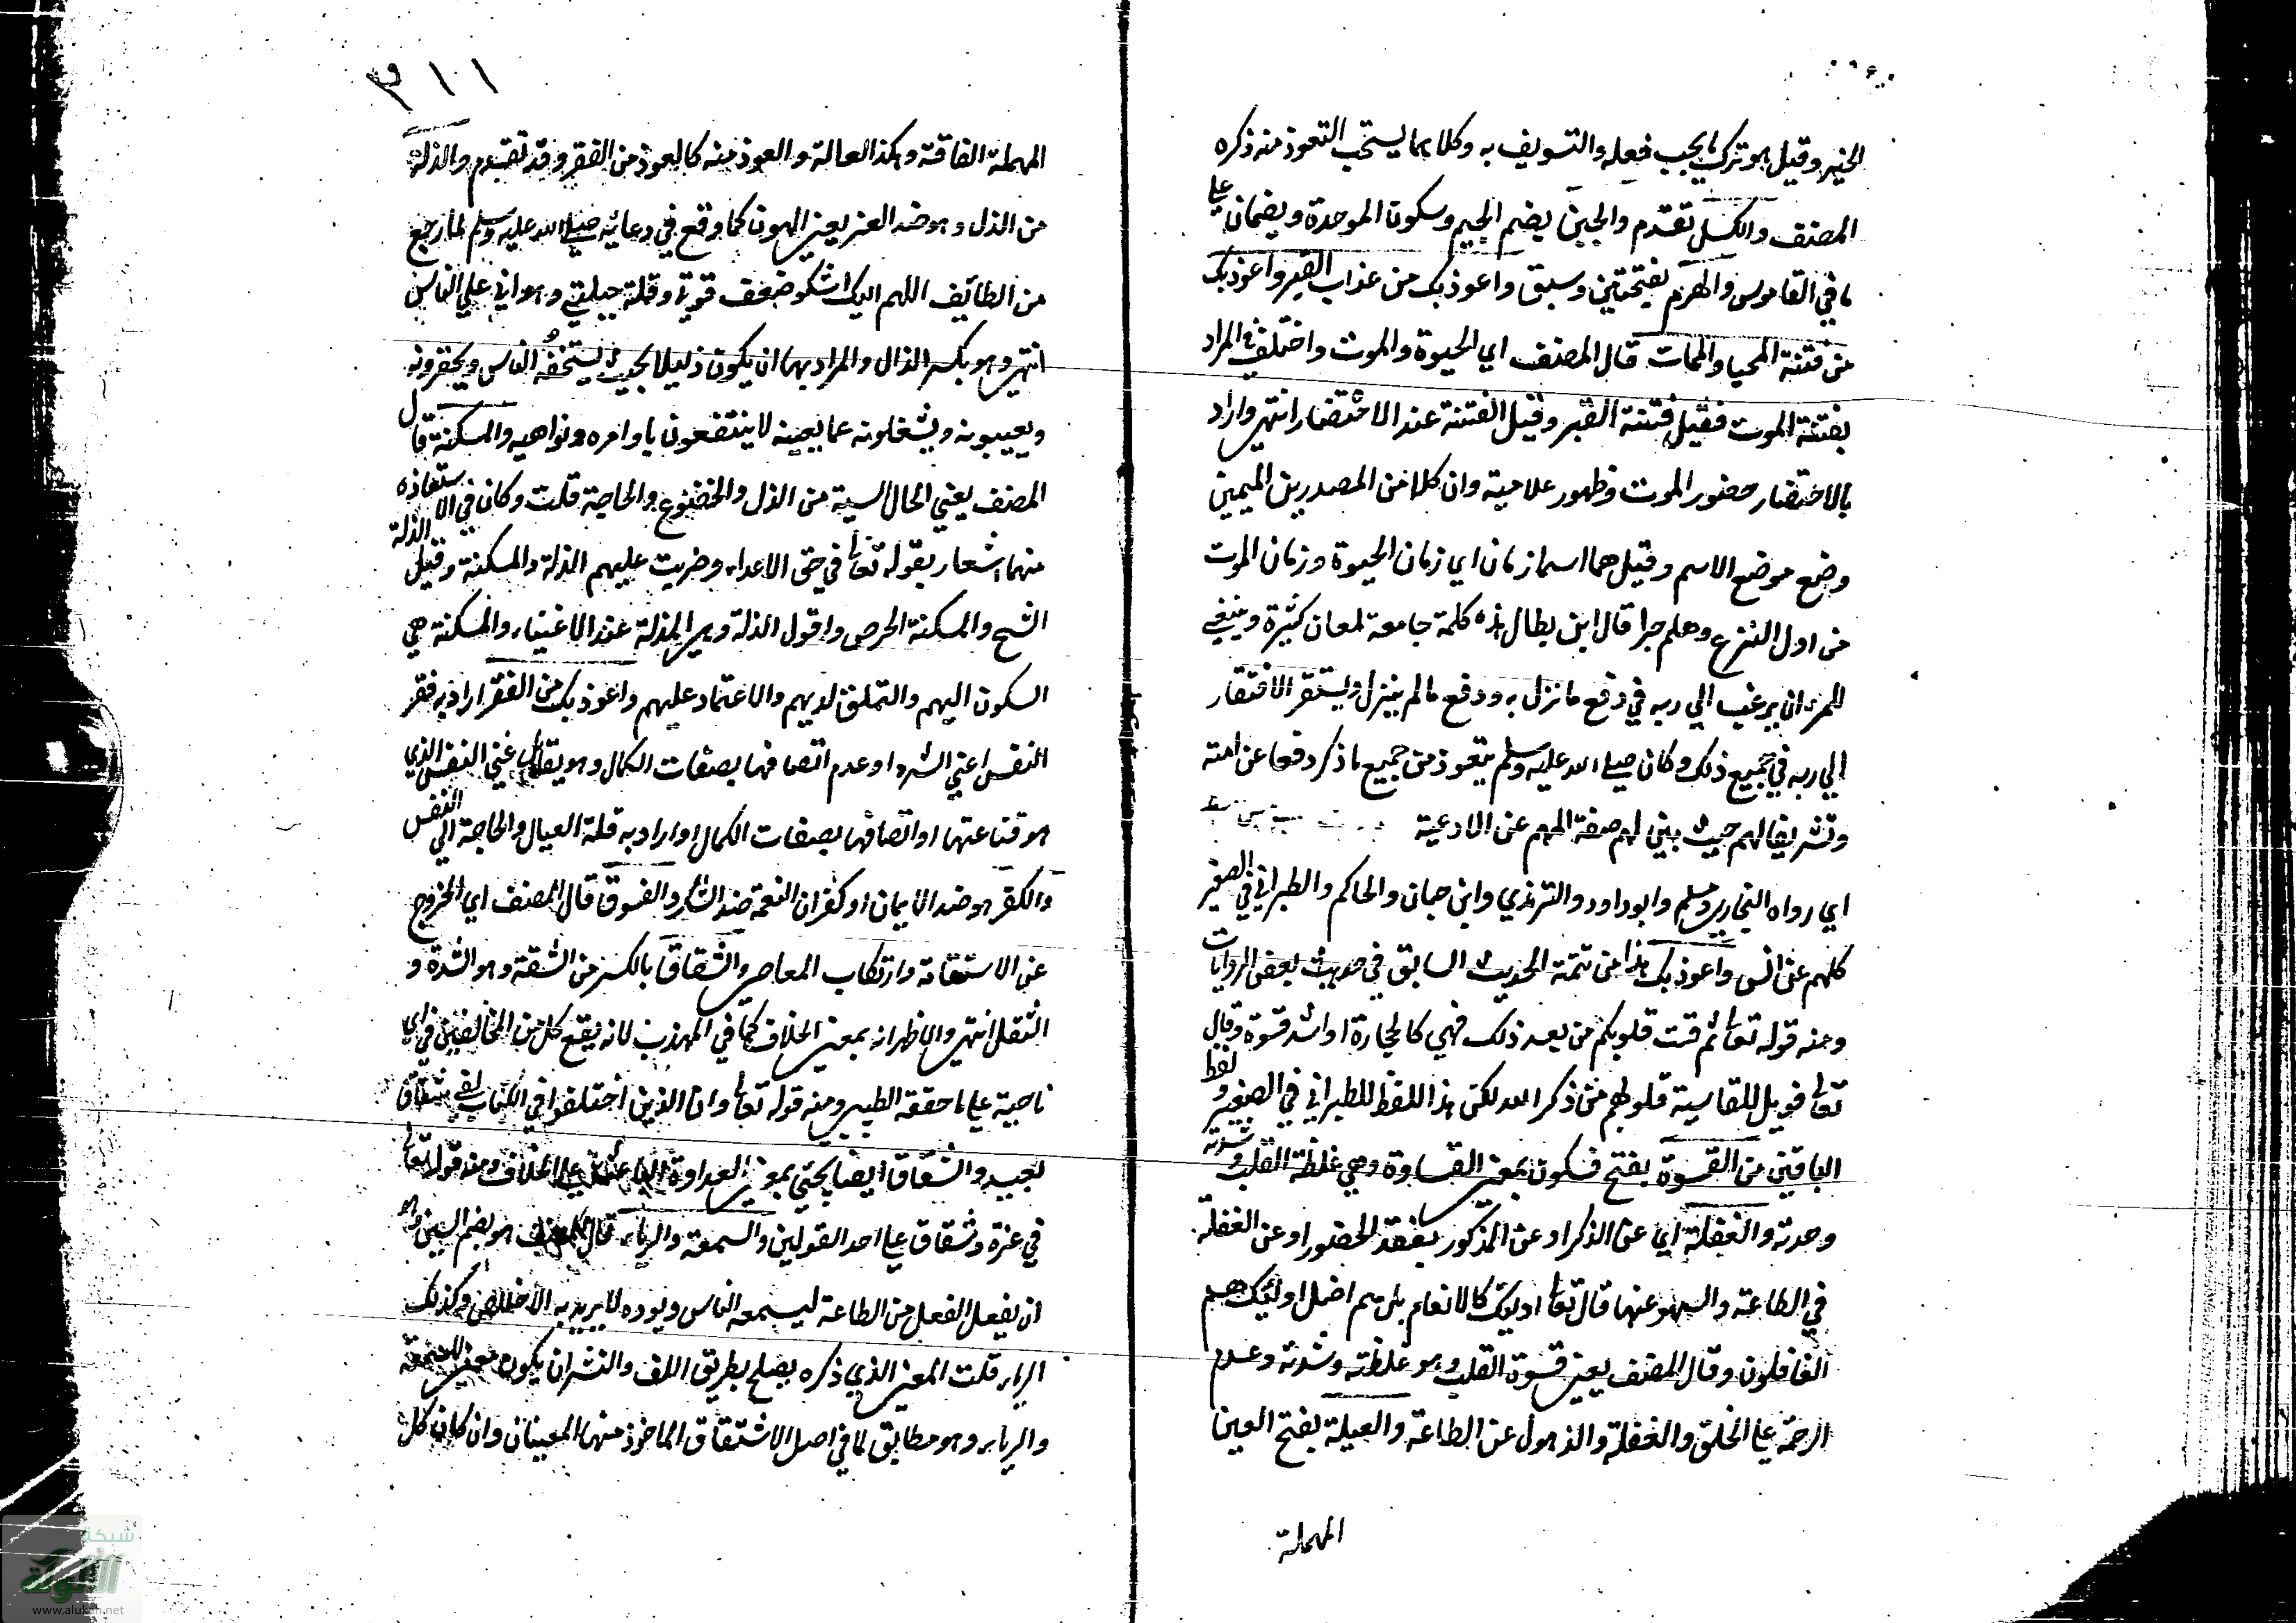 الخير وقيل هو ترك ما يجب فعله والتسويف به وكلاهما يستحب التعوذ منه ذكره
المصنف والكسل تقدم والجبن بضم الجيم وسكون الموحدة وبضمان علي
ما في القاموس والهرم بفتحتين وسبق واعوذ بك من عذاب القبر واعوذ بك
من فتنة المحيا والممات قال المصنف اي الحيوة والموت واختلف في المراد
بفتنة الموت فقيل فتنة القبر وقيل الفتنة عند الاحتضار انتهي واراد
بالاحتضار حضور الموت وظهور علامته وان كلا من المصدرين الميمين
وضع موضع الاسم وقيل هما اسما زمان اي زمان الحيوة وزمان الموت
من اول النزع وهلم جرا قال ابن بطال هذه كلمة جامعة لمعان كثيرة وينبغي
للمرء ان يرغب الي ربه في دفع ما نزل به ودفع ما لم ينزل ويستقر الافتقار
الي ربه في جميع ذلك وكان صلي الله عليه وسلم يتعوذ من جميع ما ذكر دفعا عن امته
وتشريفا لهم حيث بين لهم صفة المهم عن الادعية
اي رواه البخاري ومسلم وابو داود والترمذي وابن حبان والحاكم والطبراني في الصغير
كلهم عن انس واعوذ بك هذا من تتمة الحديث السابق في حديث بعض الروايات
ومنه قوله تعالى ثم قست قلوبكم من بعد ذلك فهي كالحجارة او اشد قسوة وقال
تعالى فويل للقاسية قلوبهم من ذكر الله لكن هذا اللفظ للطبراني في الصغير ولفظ
الباقين من القسوة بفتح فسكون بمعني القساوة وهي غلظة القلب وشدته
وحدته والغفلة اي عن الذكر او عن المذكور بفقد الحضور او عن الغفلة
في الطاعة والسهو عنها قال تعالى اوليك كالانعام بل هم اضل اولئك هم
الغافلون وقال المصنف يعني قسوة القلب وهو غلظته وشدته وعدم
الرحمة علي الخلق والغفلة والذهول عن الطاعة والعيلة بفتح العين
المهملة
٣١١
المهملة الفاقة وهكذا العالة والعوذ منه كالعوذ من الفقر وقد تقدم والذلة
من الذل وهو ضد العز يعني الهون كما وقع في دعائه صلي الله عليه وسلم لما رجع
من الطائف اللهم اليك اشكو ضعف قوتي وقلة حيلتي وهواني علي الناس
انتهي وهو بكسر الذال والمراد بها ان يكون ذليلا بحيث يستخفه الناس ويحقرونه
ويعيبونه ويشغلونه عما يعينه لا ينتفعون باوامره ونواهيه والمسكنة قال
المصنف يعني الحال السيئة من الذل والخضوع والحاجة قلت وكان في الاستعاذه
منهما اشعار بقوله تعالى في حق الاعداء وضربت عليهم الذلة والمسكنة وقيل الذلة
الشح والمسكنة الحرص واقول الذلة وهي المذلة عند الاغنياء والمسكنة هي
السكون اليهم والتملق لديهم والاعتماد عليهم واعوذ بك من الفقر اراد به فقر
النفس اعني الشره او عدم اتصافها بصفات الكمال وهو يقابل غني النفس الذي
هو قناعتها او اتصافها بصفات الكمال او اراد به قلة العيال والحاجة الي النفس
والكفر هو ضد الايمان او كفران النعمة ضد الشكر والفسوق قال المصنف اي الخروج
عن الاستقامة وارتكاب المعاصي والشقاق بالكسر من الشقة وهو الشدة و
الثقل انتهي والاظهر انه بمعني الخلاف كما في المهذب لانه يقع كل من المخالفين في اي
ناحية علي ما حققه الطيبي ومنه قوله تعالى وان الذين اختلفوا في الكتاب لفي شقاق
بعيد والشقاق ايضا يجئي بمعني العداوة الخلاف ومنه قوله تعالى
في عزة وشقاق علي احد القولين والسمعة والرياء قال المصنف هو بضم السين وهو
ان يفعل الفعل من الطاعة ليسمعه الناس ويوده لا يريد به الاخلاص وكذلك
الرياء قلت المعني الذي ذكره يصلح بطريق اللف والنشر ان يكون معني للسمعة
والرياء وهو مطابق لما في اصل الاشتقاق الماخوذ منهما المعنيان وان كان كل
شبكة
الألوكة
www.alukah.net